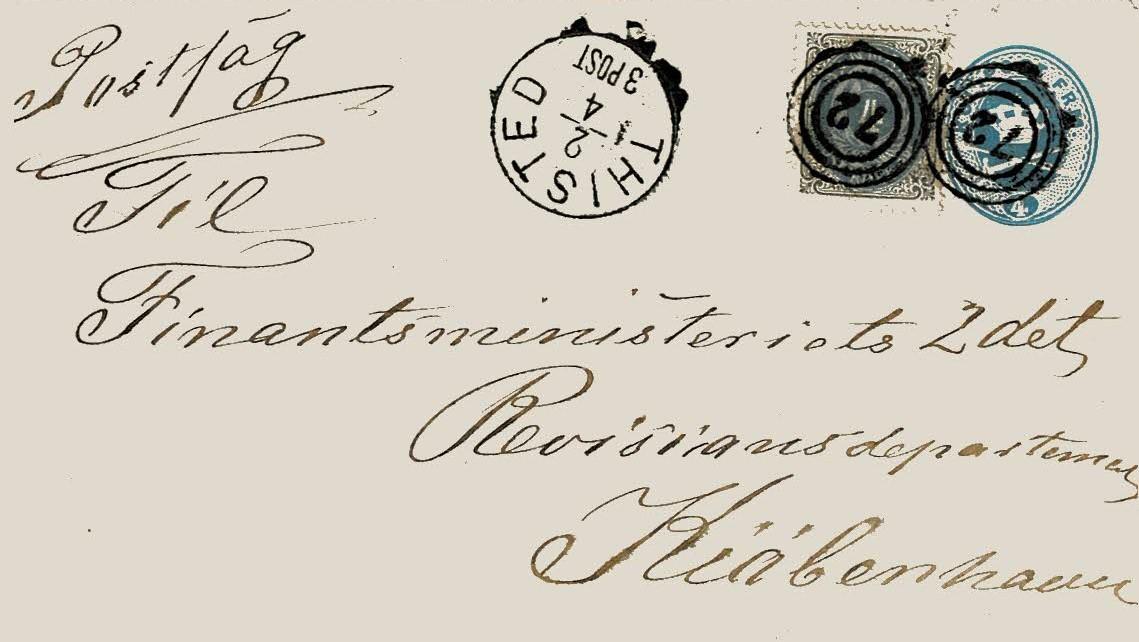 Postsag
Til
Finantsministeriets 2det
Revisionsdepartement
Kiöbenhavn
THISTED
2/4
3 POST
72
72
FRM.
4